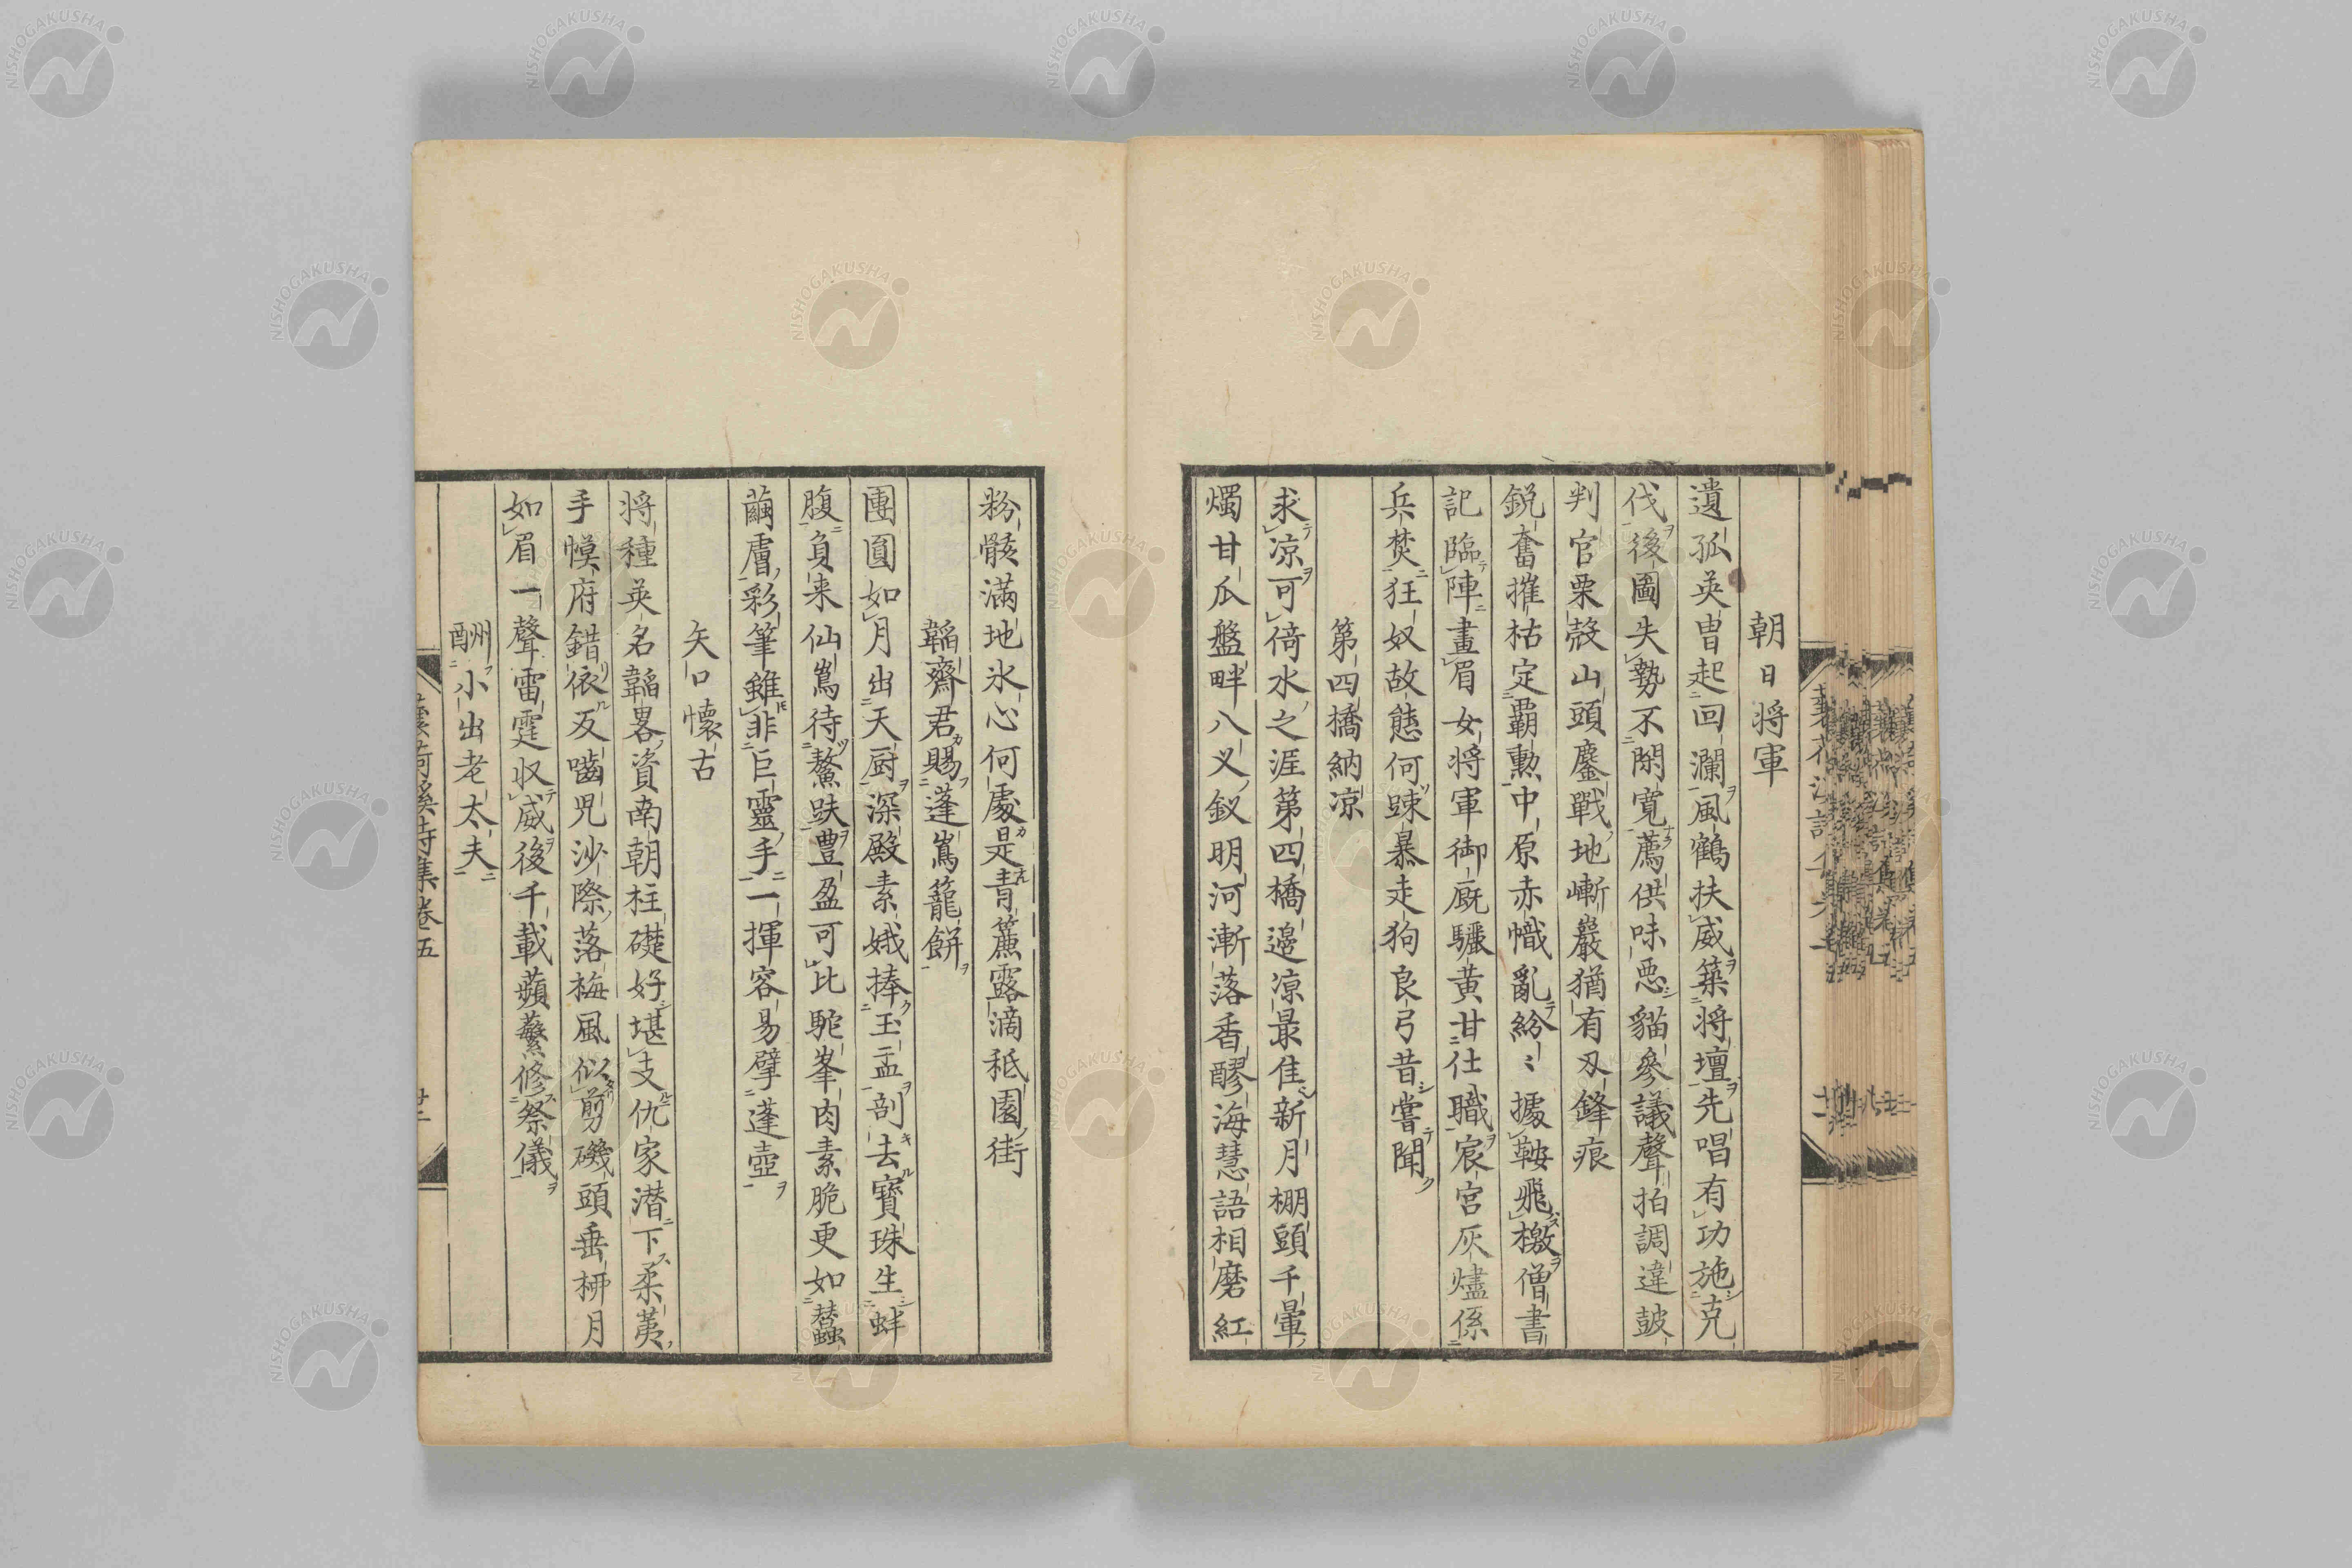 朝日将軍
遺孤英冑起回瀾風鶴扶威築将壇先唱有功施克
伐後圖失勢不閑寛薦供味悪貓參議聲拍調違皷
判官栗殻山頭鏖戰地嶄巖猶有刄鋒痕
鋭奮摧枯定覇勲中原赤幟亂紛〻據鞍飛檄僧書
記臨陣畫眉女将軍御厩驪黄甘仕職宸宮灰燼係
兵焚狂奴故態何踈暴走狗良弓昔嘗聞
第四橋納凉
求凉可倚水之涯第四橋邉凉最佳新月棚頭千暈
燭甘瓜盤畔八叉釵明河漸落香醪海慧語相磨紅
粉骸満地氷心何處是青簾露滴秪園街
韜齋君賜蓬嶌籠餅
團圓如月出天厨深殿素娥捧玉盂剖去寳珠生蚌
腹負来仙嶌待鰲趺豊盈可比駝峯肉素脆更如蠶
繭膚彩筆雖非巨靈手一揮容易擘蓬壺
矢口懷古
将種英名韜畧資南朝柱礎好堪支仇家潜下柔荑
手幙府錯依反噬児沙際落梅風似剪磯頭垂桺月
如眉一聲雷霆収威後千載蘋蘩修祭儀
酬小出老太夫
蘘荷溪詩集卷五
廿二
NISHOGAKUSHA